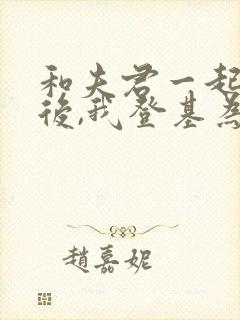 和夫君一起
後,我登基為
趙嘉妮